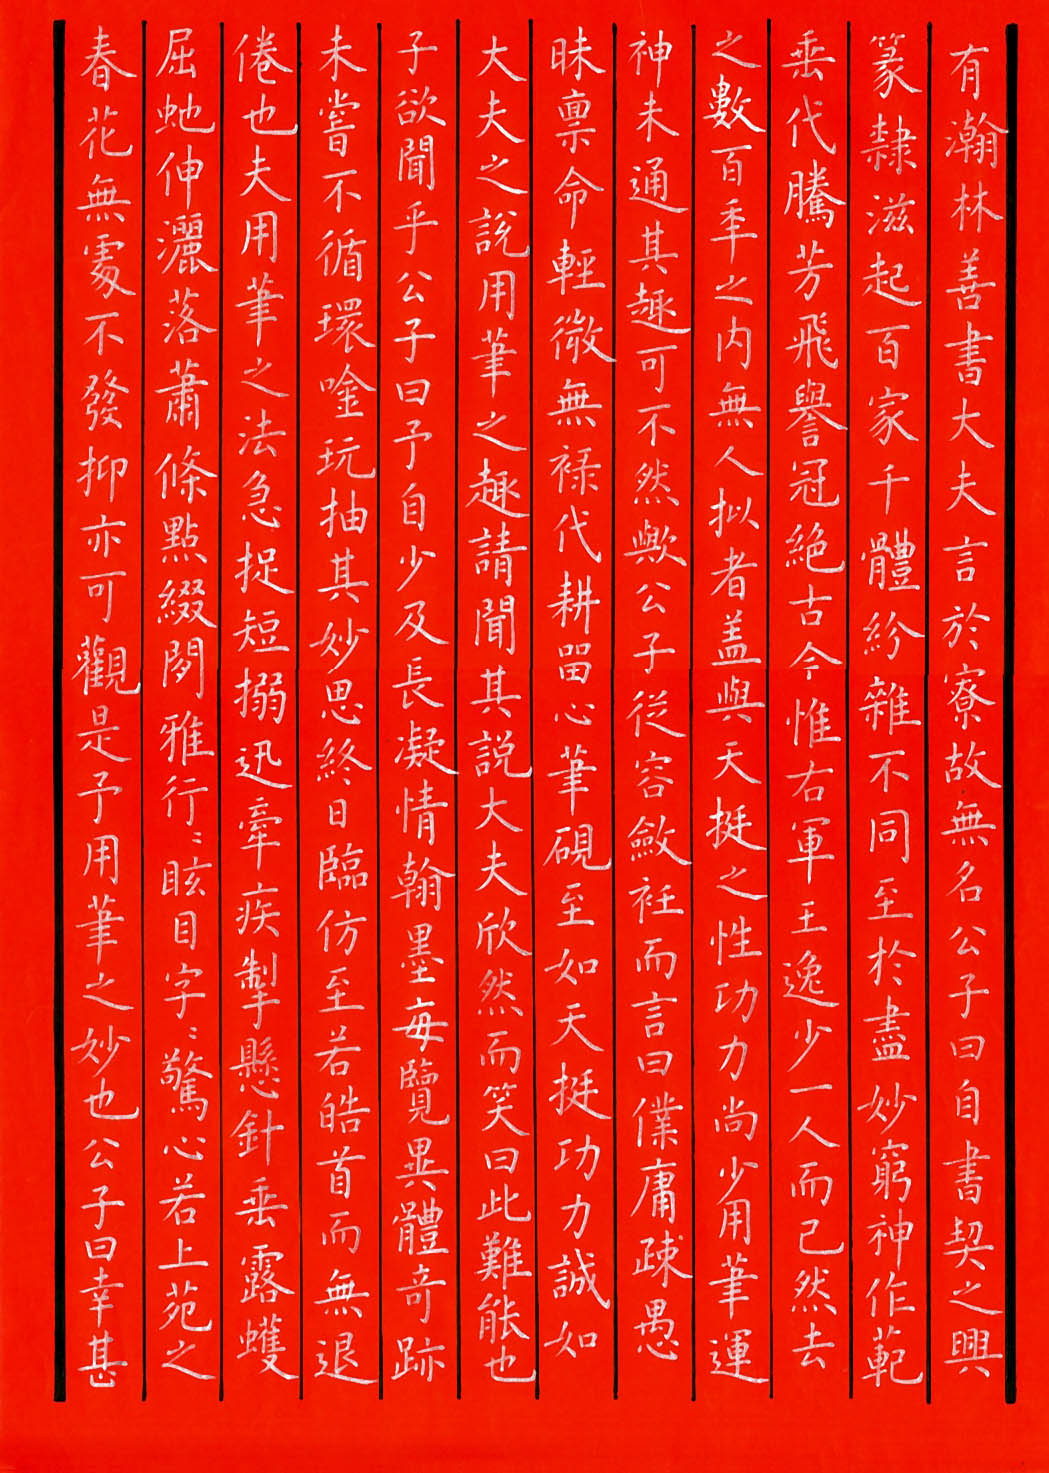 有瀚林善書大夫言於寮故無名公子曰自書契之興
篆隸滋起百家千體紛雜不同至於盡妙窮神作範
垂代騰芳飛譽冠絕古今惟右軍王逸少一人而已然去
之數百年之内無人拟者盖與天挺之性功力尚少用筆運
神未通其趣可不然歟公子從容斂衽而言曰僕庸疎愚
昧禀命輕微無祿代耕留心筆硯至如天挺功力誠如
大夫之說用筆之趣請聞其説大夫欣然而笑曰此難能也
子欲聞乎公子曰予自少及長凝情翰墨每覽異體奇跡
未嘗不循環唫玩抽其妙思終日臨仿至若皓首而無退
倦也夫用筆之法急捉短搦迅牽疾掣懸針垂露蠖
屈虵伸灑落蕭條點綴閑雅行〻眩目字〻驚心若上苑之
春花無處不發抑亦可觀是予用筆之妙也公子曰幸甚